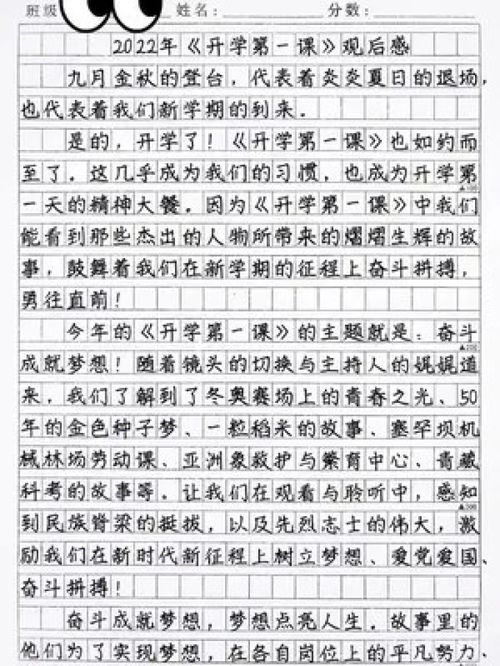 班级 姓名：________ 分数：________
2022年《开学第一课》观后感
九月金秋的登台，代表着炎炎夏日的退场，
也代表着我们新学期的到来．
是的，开学了！《开学第一课》也如约而
至了．这几乎成为我们的习惯，也成为开学第
一天的精神大餐．因为《开学第一课》中我们
能看到那些杰出的人物所带来的熠熠生辉的故
事，鼓舞着我们在新学期的征程上奋斗拼搏，
勇往直前！
今年的《开学第一课》的主题就是：奋斗
成就梦想！随着镜头的切换与主持人的娓娓道
来，我们了解到了冬奥赛场上的青春之光、50
年的金色种子梦、一粒稻米的故事、塞罕坝机
械林场劳动课、亚洲象救护与繁育中心、青藏
科考的故事等．让我们在观看与聆听中，感知
到民族脊梁的挺拔，以及先烈志士的伟大，激
励我们在新时代新征程上树立梦想、爱党爱国、
奋斗拼搏！
奋斗成就梦想，梦想点亮人生．故事里的
他们为了实现梦想，在各自岗位上的平凡努力、